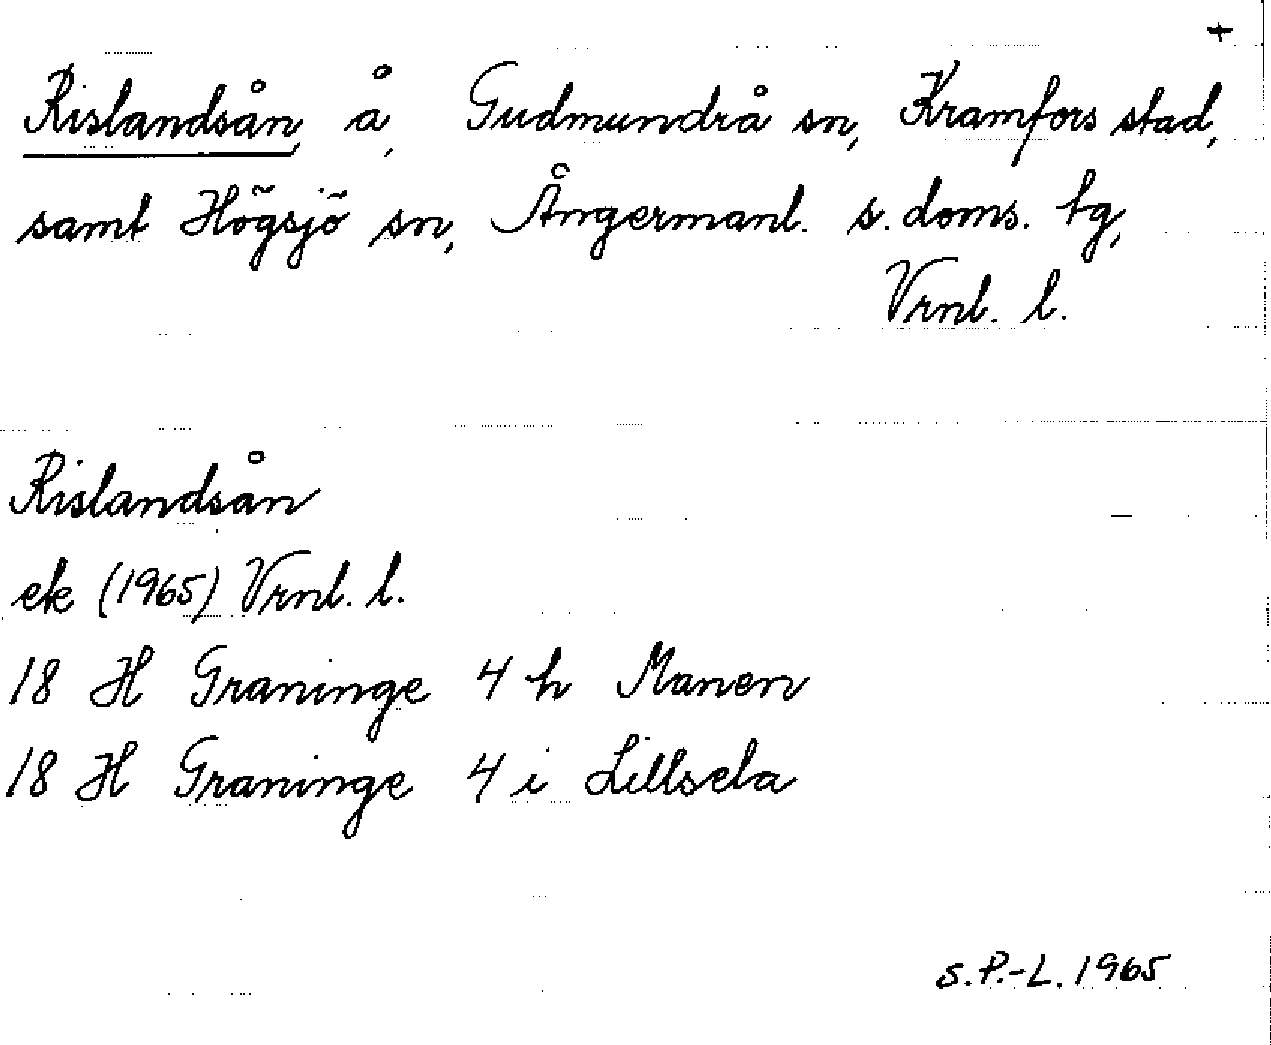 +
Rislandsån, å, Gudmundrå sn, Kramfors stad,
samt Högsjö sn, Ångermanl. s. doms. tg,
Vrnl. l.
Rislandsån
ek (1965) Vrnl. l.
18 H Graninge 4 h Manen
18 H Graninge 4 i Lillsela
S.P.-L. 1965